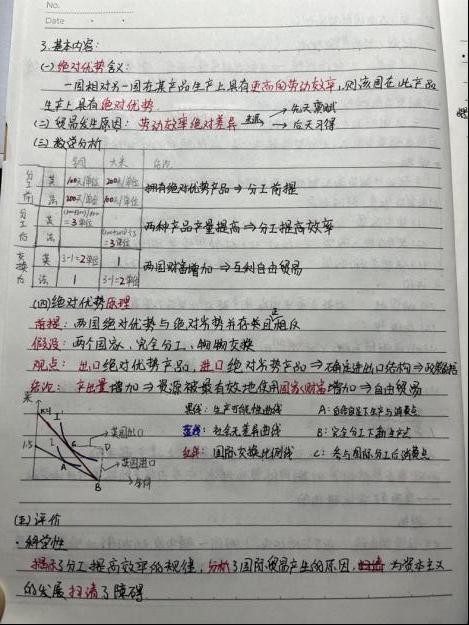 No.
Date
3.基本内容:
(一)绝对优势含义:
一国相对另一国在某产品生产上具有更高的劳动效率,则该国在此产品
生产上具有绝对优势
(二)贸易发生原因:劳动效率绝对差异 → 先天禀赋
→ 后天习得
(三)数学分析
大米
分工前 英 100人/单位 200人/单位 拥有绝对优势产品⇒分工前提
法 200人/单位 100人/单位
分工后 英 =3单位 两种产品产量提高⇒分工提高效率
法 =3单位
交换后 英 3-1=2单位 1 两国财富增加⇒互利自由贸易
法 1 3-1=2单位
(四)绝对优势原理
前提:两国绝对优势与绝对劣势并存且正相反
假设:两个国家、完全分工、物物交换
观点:出口绝对优势产品,进口绝对劣势产品⇒确定进出口结构⇒
结论:产出量增加⇒资源被最有效地使用国家财富增加⇒自由贸易
米
黑线:生产可能性曲线 A:自给自足下生产与消费点
1.5 I I C 英国出口 蓝线:社会无差异曲线 B:完全分工下新生产点
A D 英国进口 红线:国际交换比例线 C:参与国际分工后消费点
B
(五)评价
·科学性
揭示了分工提高效率的规律,分析了国际贸易产生的原因,为资本主义
的发展扫清了障碍